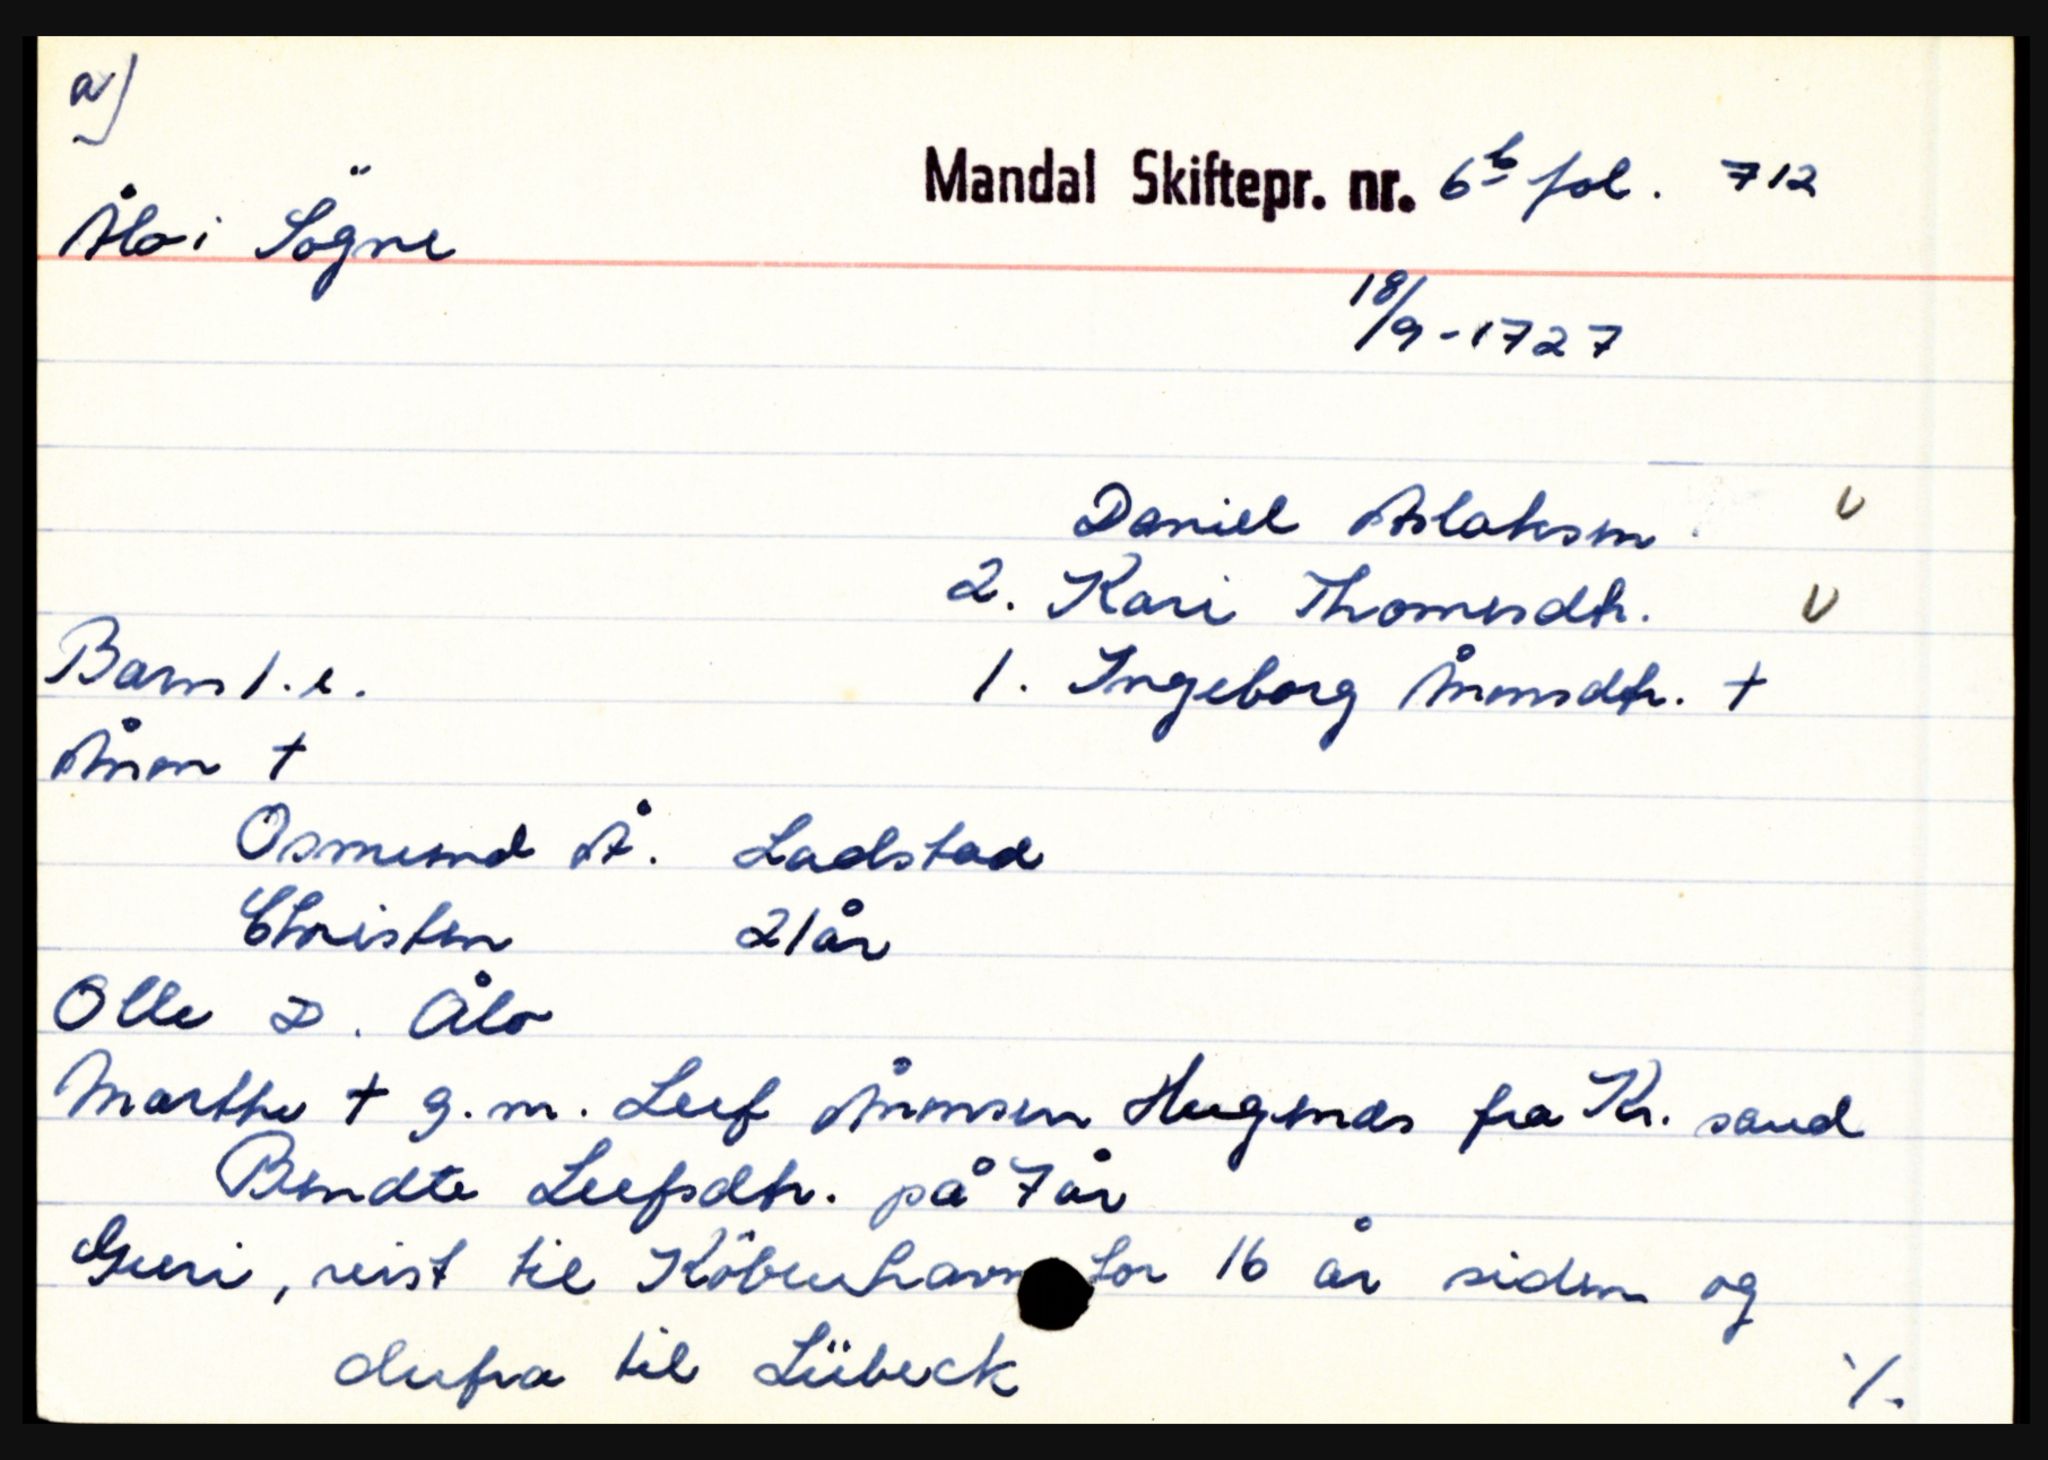 a)
Mandal Skiftepr. nr. 6b fol. 712
Ålo i Sögne
18/9-1727
Daniel Aslaksen v
2. Kari Thomesdtr. v
Barn 1. e.
1. Ingeborg Ånensdtr. †
Ånen †
Osmund Å. Ladstad
Christen 21 år
Olle D. Ålo
Marthe † g.m. Leef Ånensen Hugenes fra Kr. sand
Bendte Leefsdtr. på 7 år
Guri, reist til Köbenhavn for 16 år siden og
derfra til Lübeck
·/.